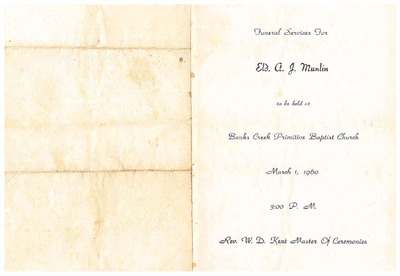 Funeral Services For
Eld. A. J. Munlin
to be held at
Banks Creek Primitive Baptist Church
March 1, 1960
3:00 P. M.
Rev. W. D. Kent Master Of Ceremonies